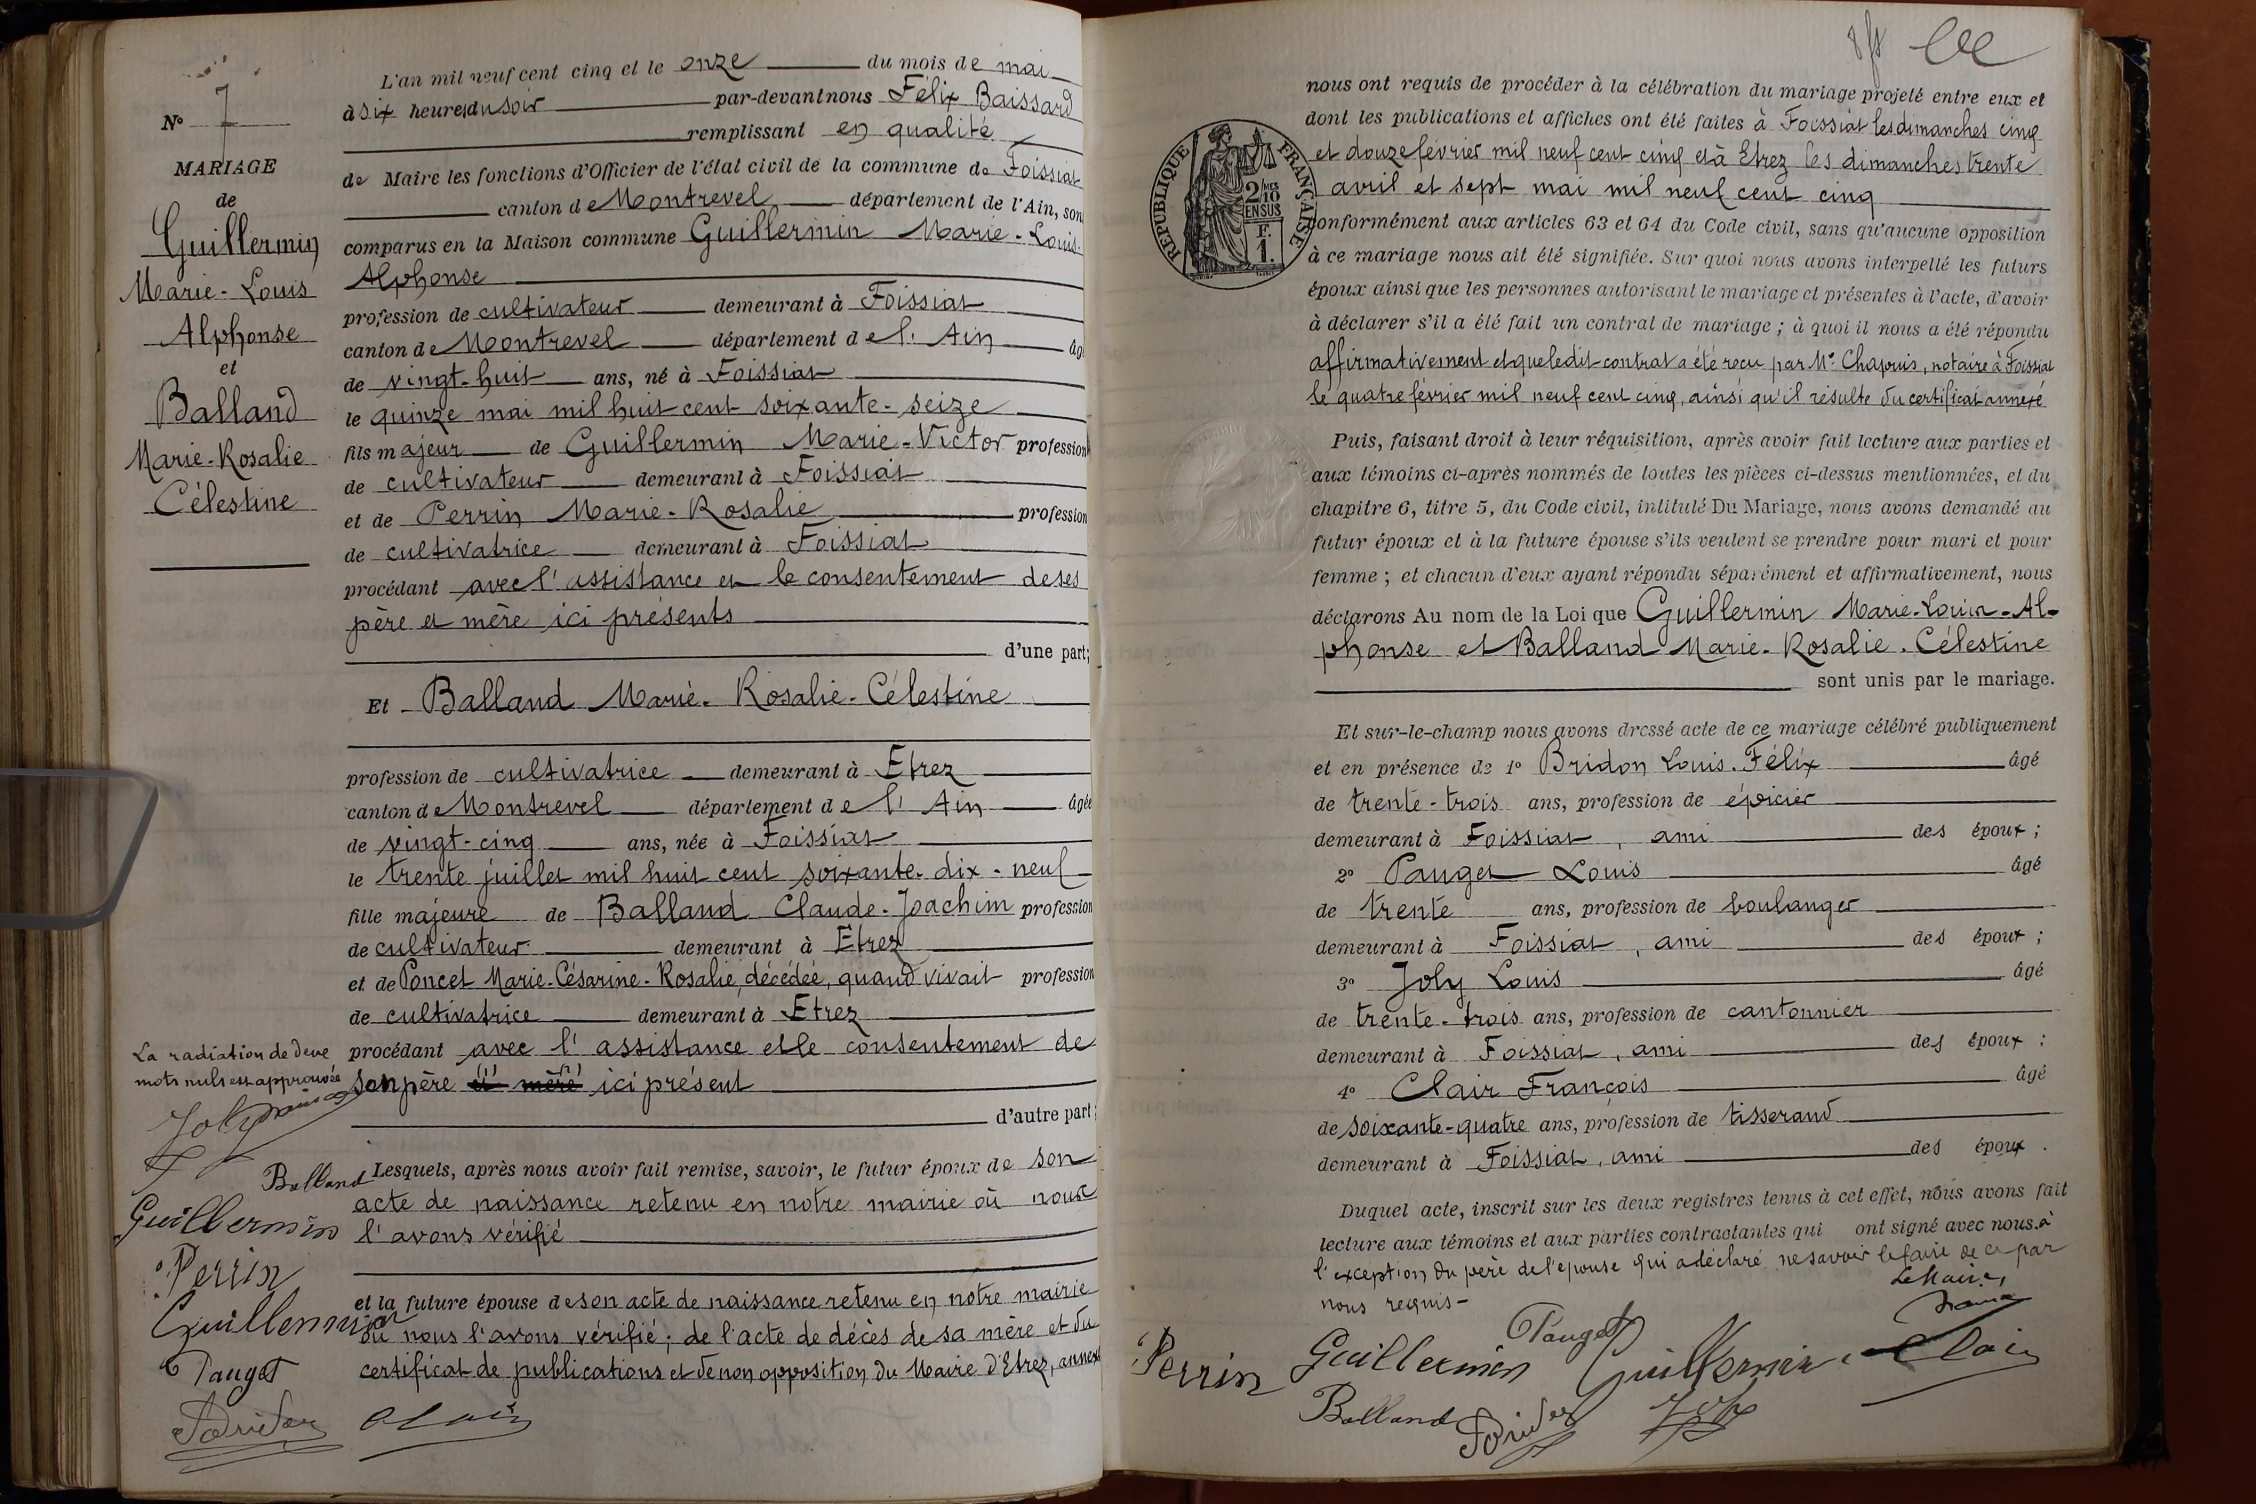 N° 7
MARIAGE
de
Guillermin
Marie-Louis
Alphonse
et
Balland
Marie-Rosalie
Célestine
L'an mil neuf cent cinq et le onze du mois de mai
à six heures du soir par-devant nous Félix Baissard
remplissant en qualité
de Maire les fonctions d'Officier de l'état civil de la commune de Foissiat
canton de Montrevel, département de l'Ain, son
comparus en la Maison commune Guillermin Marie-Louis-
Alphonse
profession de cultivateur demeurant à Foissiat
canton de Montrevel département de l'Ain âg
de vingt-huit ans, né à Foissiat
le quinze mai mil huit cent soixante-seize
fils majeur de Guillermin Marie-Victor profession
de cultivateur demeurant à Foissiat
et de Perrin Marie-Rosalie profession
de cultivatrice demeurant à Foissiat
procédant avec l'assistance et le consentement de ses
père et mère ici présents
d'une part;
Et Balland Marie-Rosalie-Célestine
profession de cultivatrice demeurant à Etrez
canton de Montrevel département de l'Ain âgée
de vingt-cinq ans, née à Foissiat
le trente juillet mil huit cent soixante-dix-neuf
fille majeure de Balland Claude-Joachim profession
de cultivateur demeurant à Etrez
et de Poncet Marie-Césarine-Rosalie, décédée, quand vivait profession
de cultivatrice demeurant à Etrez
procédant avec l'assistance et le consentement de
son père et mère ici présent
d'autre part;
La radiation de deux
mots nuls est approuvée
Joly
Balland
Guillermin
Perrin
Guillermin
Pauget
Bridon
Clair
Lesquels, après nous avoir fait remise, savoir, le futur époux de son
acte de naissance retenu en notre mairie où nous
l'avons vérifié
et la future épouse de son acte de naissance retenu en notre mairie
où nous l'avons vérifié; de l'acte de décès de sa mère et du
certificat de publications et de non opposition du Maire d'Etrez, annex
RÉPUBLIQUE FRANÇAISE
2/10 MES
EN SUS
F.
1.
nous ont requis de procéder à la célébration du mariage projeté entre eux et
dont les publications et affiches ont été faites à Foissiat les dimanches cinq
et douze février mil neuf cent cinq et à Etrez les dimanches trente
avril et sept mai mil neuf cent cinq
conformément aux articles 63 et 64 du Code civil, sans qu'aucune opposition
à ce mariage nous ait été signifiée. Sur quoi nous avons interpellé les futurs
époux ainsi que les personnes autorisant le mariage et présentes à l'acte, d'avoir
à déclarer s'il a été fait un contrat de mariage; à quoi il nous a été répondu
affirmativement et que ledit contrat a été reçu par Me Chapuis, notaire à Foissiat
le quatre février mil neuf cent cinq, ainsi qu'il résulte du certificat annexé
Puis, faisant droit à leur réquisition, après avoir fait lecture aux parties et
aux témoins ci-après nommés de toutes les pièces ci-dessus mentionnées, et du
chapitre 6, titre 5, du Code civil, intitulé Du Mariage, nous avons demandé au
futur époux et à la future épouse s'ils veulent se prendre pour mari et pour
femme; et chacun d'eux ayant répondu séparément et affirmativement, nous
déclarons Au nom de la Loi que Guillermin Marie-Louis-Al-
phonse et Balland Marie-Rosalie-Célestine
sont unis par le mariage.
Et sur-le-champ nous avons dressé acte de ce mariage célébré publiquement
et en présence de 1° Bridon Louis-Félix âgé
de trente-trois ans, profession de épicier
demeurant à Foissiat, ami des époux;
2° Pauget Louis âgé
de trente ans, profession de boulanger
demeurant à Foissiat, ami des époux;
3° Joly Louis âgé
de trente-trois ans, profession de cantonnier
demeurant à Foissiat, ami des époux;
4° Clair François âgé
de soixante-quatre ans, profession de tisserand
demeurant à Foissiat, ami des époux.
Duquel acte, inscrit sur les deux registres tenus à cet effet, nous avons fait
lecture aux témoins et aux parties contractantes qui ont signé avec nous à
l'exception du père de l'épouse qui a déclaré ne savoir le faire de ce par
nous requis-
Le Maire,
Perrin Guillermin Pauget Guillermin Clair
Balland Bridon Joly